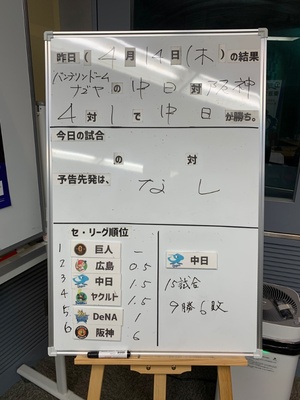 昨日(4月14日(木))の結果
バンテリンドーム
ナゴヤの中日対阪神
4対1で中日が勝。
今日の試合
の 対
予告先発は、なし
セ・リーグ順位
1 巨人 ー
2 広島 0.5
3 中日 1.5
4 ヤクルト 1.5
5 DeNA 1
6 阪神 6
中日
15試合
9勝6敗